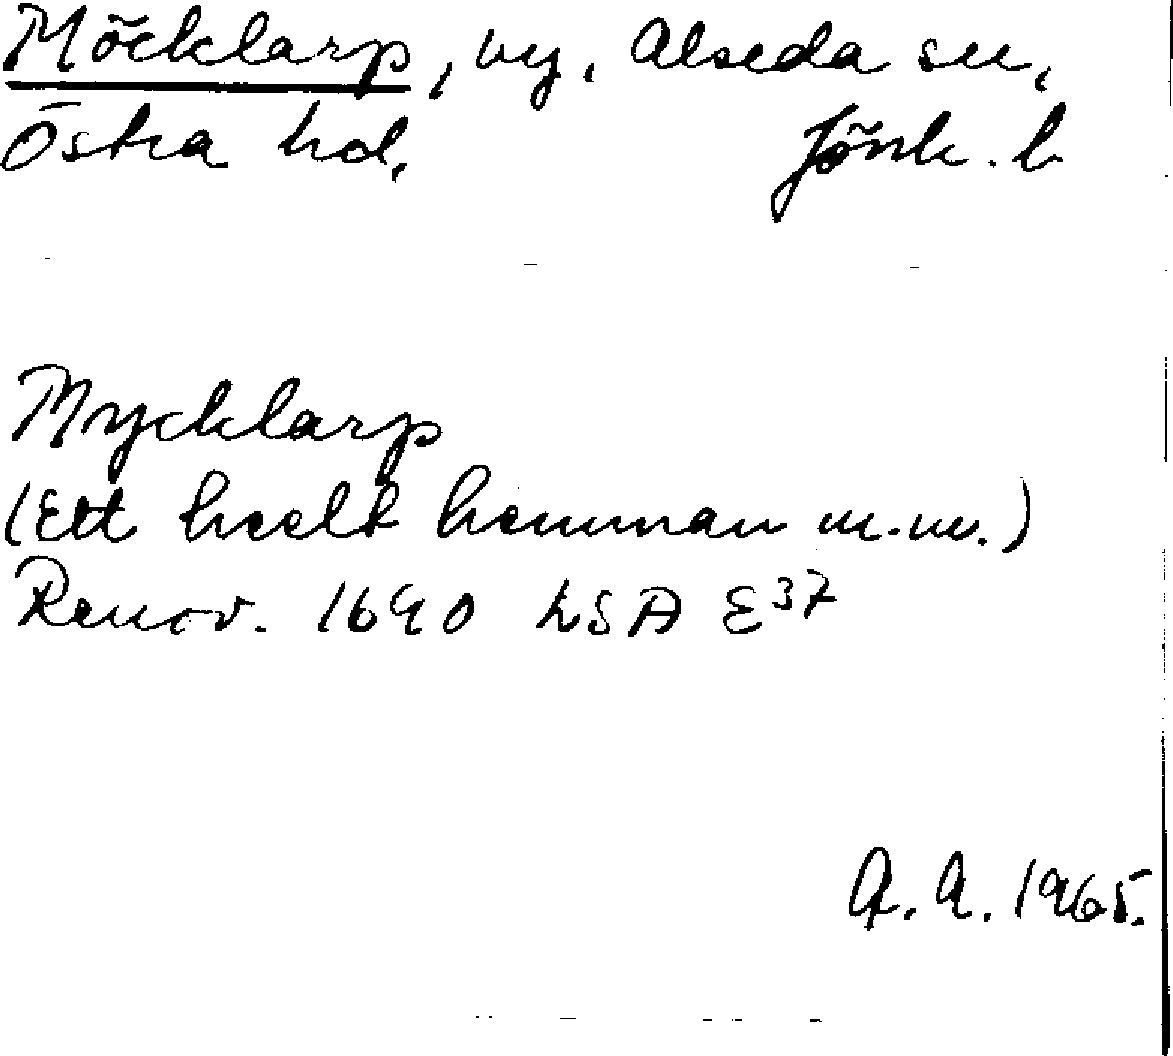 Möcklarp, by, Alseda sn,
Östra hd. Jönk. l.
Mycklarp
(Ett heelt hemman m.m.)
Renov. 1690 LSA E37
A. A. 1965.